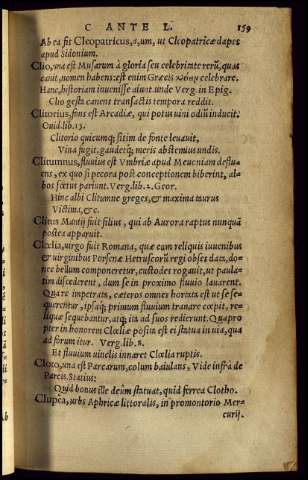 C ANTE L. 159
Ab ea fit Cleopatricus, a, um, ut Cleopatricæ dapes
apud Sidonium.
Clio, una est Musarum à gloria seu celebritate rerũ, quas
canit, nomen habens: est enim Græcis celebrare.
Hanc, historiam inuenisse aiunt unde Verg. in Epig.
Clio gesta canens transactis tempora reddit.
Clitorius, fons est Arcadiæ, qui potus uini odiũ inducit.
Ouid. lib. 15.
Clitorio quicumq; sitim de fonte leuauit,
Vina fugit, gaudetq; meris abstemius undis.
Clitumnus, fluuius est Vmbriæ apud Meuaniam deflu-
ens, ex quo si pecora post conceptionem biberint, al-
bos fœtus pariunt. Verg. lib. 2. Geor.
Hinc albi Clitumne greges, & maxima taurus
Victima, &c.
Clitus Mantij fuit filius, qui ab Aurora raptus nunquã
postea apparuit.
Clœlia, uirgo fuit Romana, quæ cum reliquis iuuenibus
& uirginibus Porsenæ Hetruscorũ regi obses data, do-
nec bellum componeretur, custodes rogauit, ut paula-
tim discederent, dum se in proximo fluuio lauarent.
Quare impetrata, cæteros omnes hortata est ut se se-
querentur, ipsaq; primum fluuium tranare cœpit, re-
liquæ sequebantur, atq; ita ad suos redierunt. Quapro
pter in honorem Clœliæ posita est ei statua in uia, qua
ad forum itur. Verg. lib. 8.
Et fluuium uinclis innaret Clœlia ruptis.
Cloto, una est Parcarum, colum baiulans, Vide infrà de
Parcis. Statius:
Quid bonus ille deûm statuat, quid ferrea Clotho.
Clupea, urbs Aphricæ littoralis, in promontorio Mer-
curij.